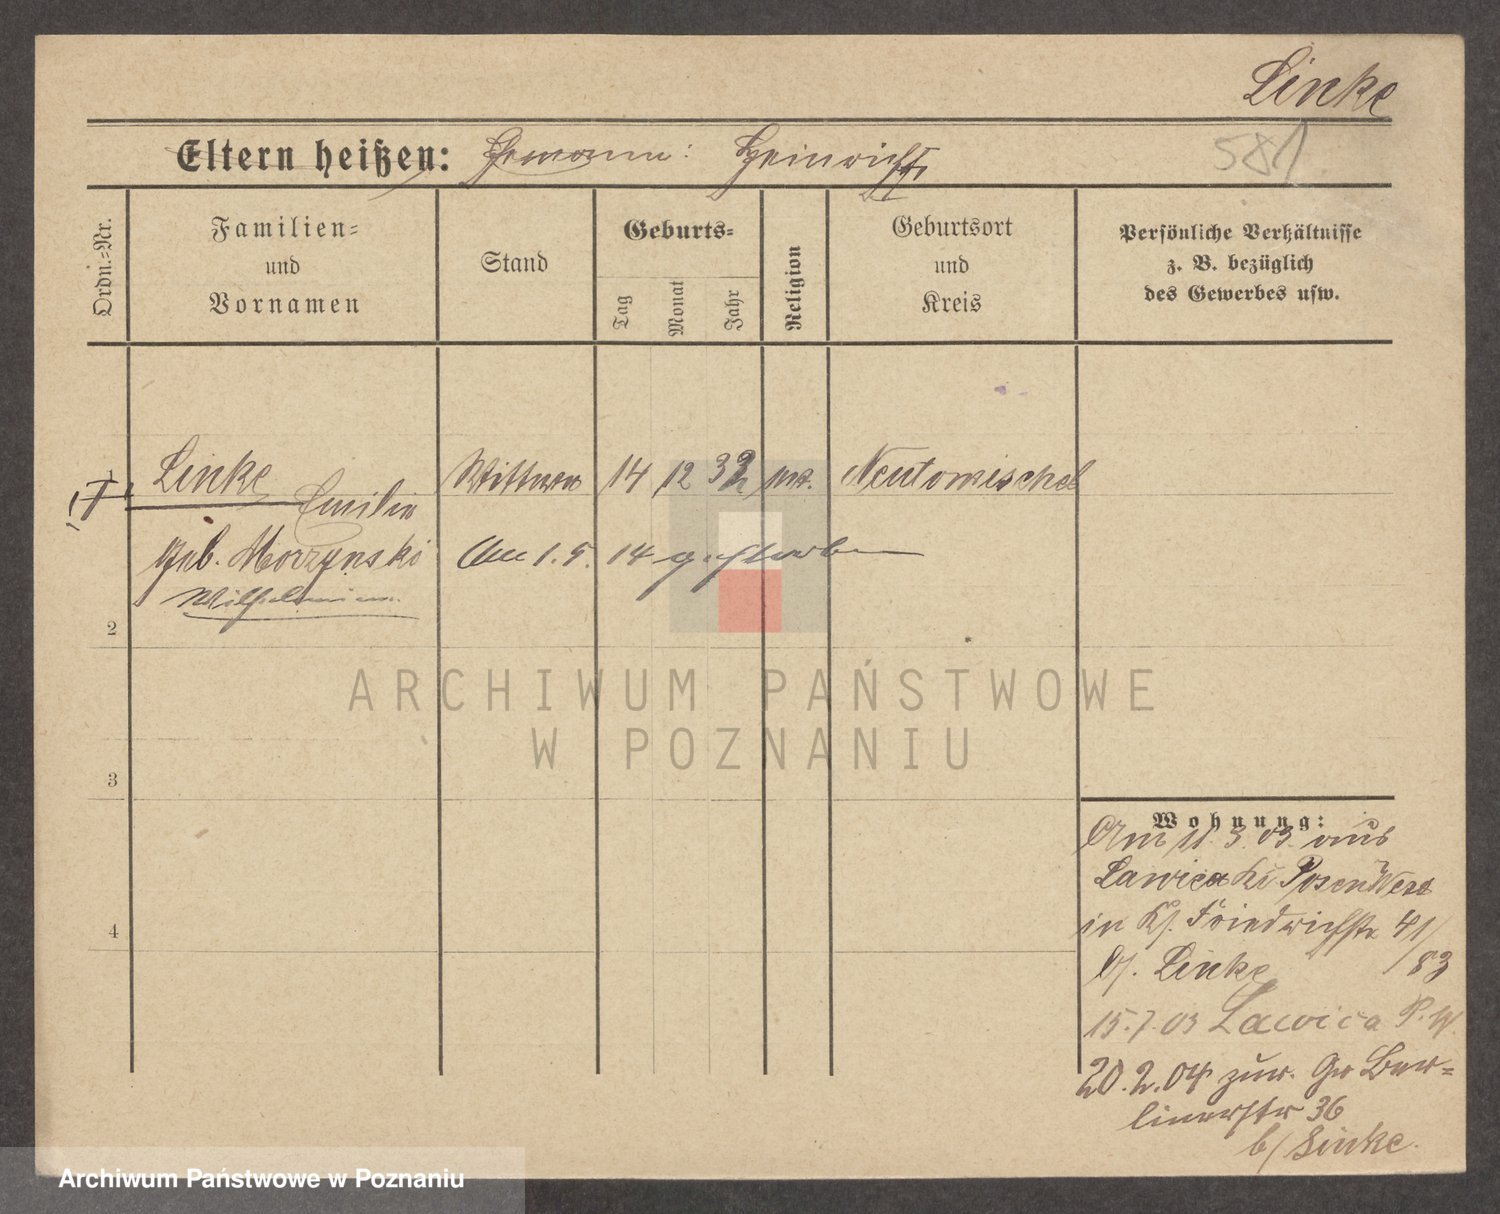 Linke
Eltern heißen: Ehemann: Heinrich
581
Ordn.-Nr.
Familien-
und
Vornamen
Stand
Geburts-
Tag
Monat
Jahr
Religion
Geburtsort
und
Kreis
Persönliche Verhältnisse
z. B. bezüglich
des Gewerbes usw.
1
Linke Emilie Wittwe 14 12 32 Neutomischel
geb. Morzynski Am 1. 5. 14 gestorben
Wilhelmine
2
ARCHIWUM PAŃSTWOWE
W POZNANIU
3
4
Wohnung:
Am 11. 3. 03. aus
Lawica Posen West
in Friedrichstr 41/
83
Linke
15.7.03 Lawica P. W.
20.2.04 zur. Gr Ber-
linerstr 36
b/ Linke.
Archiwum Państwowe w Poznaniu